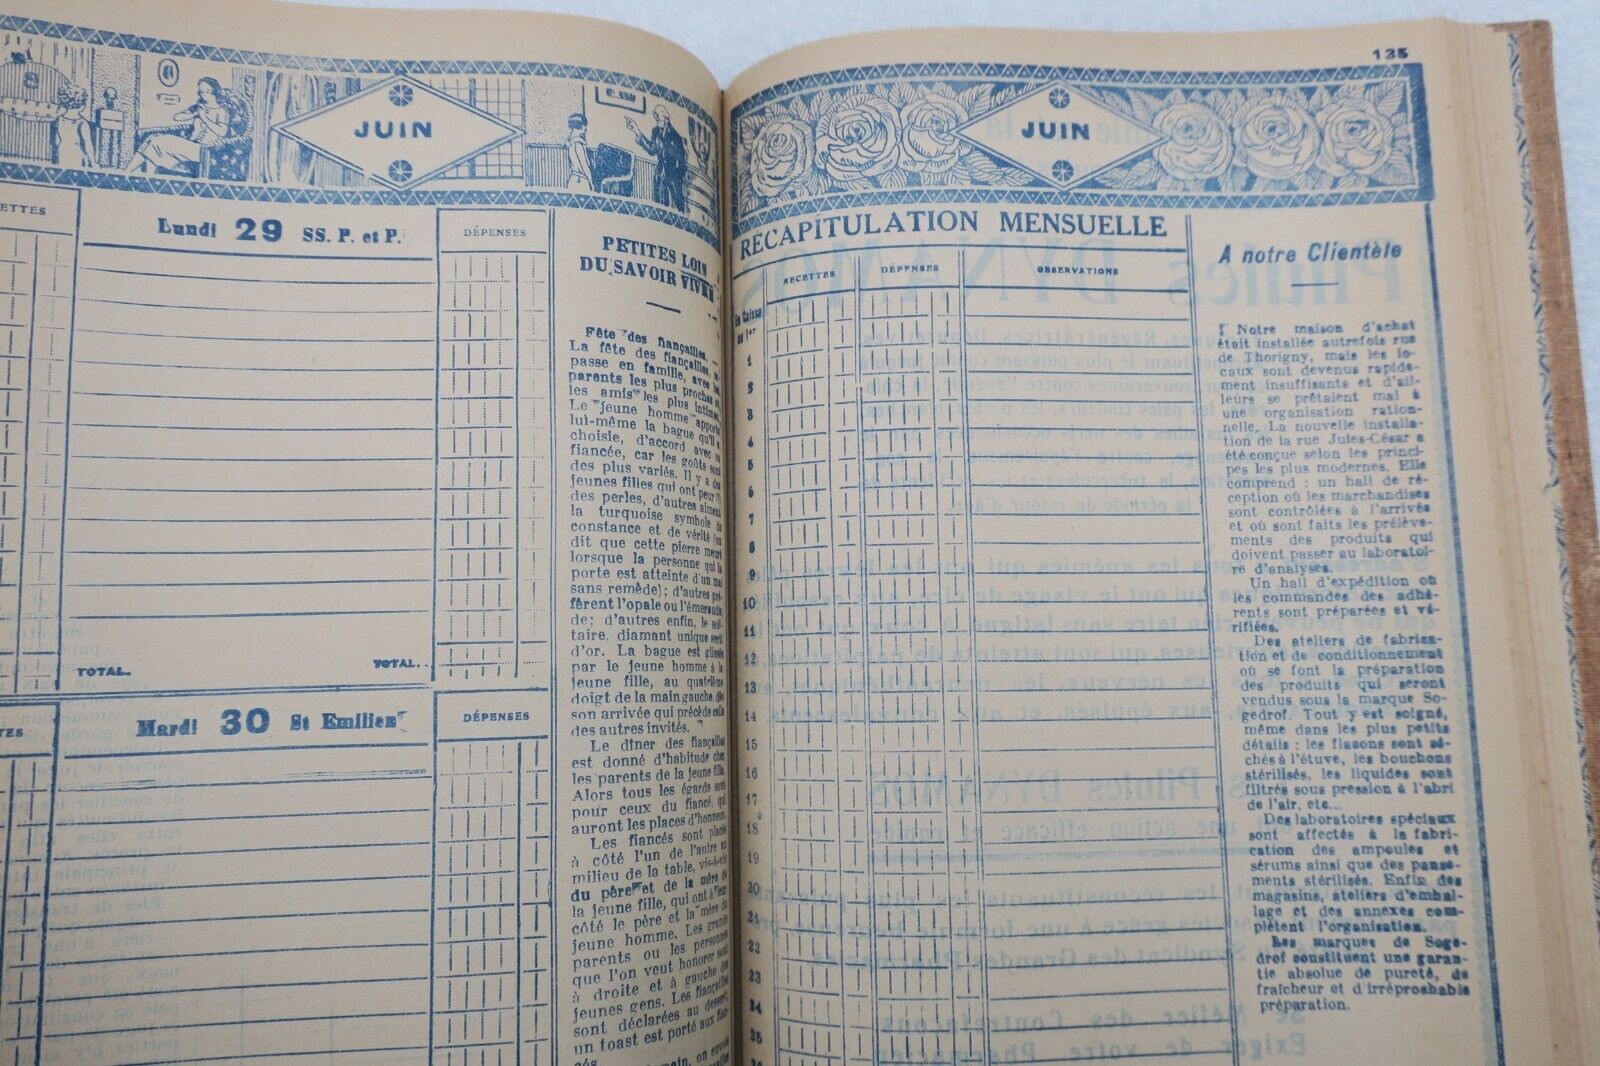 JUIN
ETTES
Lundi 29 SS. P. et P.
DÉPENSES
TOTAL.
TOTAL.
TES
Mardi 30 St Emilien
DÉPENSES
PETITES LOIS
DU SAVOIR VIVRE
Fête des fiançailles. —
La fête des fiançailles,
passe en famille, avec
parents les plus proches
les amis les plus intimes.
Le jeune homme apporte
lui-même la bague qu'il a
choisie, d'accord avec sa
fiancée, car les goûts sont
des plus variés. Il y a des
jeunes filles qui ont peur
des perles, d'autres aiment
la turquoise symbole de
constance et de vérité (on
dit que cette pierre meurt
lorsque la personne qui la
porte est atteinte d'un mal
sans remède); d'autres pré-
fèrent l'opale ou l'émeraude;
d'autres enfin, le soli-
taire, diamant unique serti
d'or. La bague est glissée
par le jeune homme à la
jeune fille, au quatrième
doigt de la main gauche, dès
son arrivée qui précède celle
des autres invités.
Le dîner des fiançailles
est donné d'habitude chez
les parents de la jeune fille.
Alors tous les égards sont
pour ceux du fiancé, qui
auront les places d'honneur.
Les fiancés sont placés
à côté l'un de l'autre au
milieu de la table, vis-à-vis
du père et de la mère de
la jeune fille, qui ont à leur
côté le père et la mère du
jeune homme. Les grands
parents ou les personnes
que l'on veut honorer sont
à droite et à gauche des
jeunes gens. Les fiançailles
sont déclarées au dessert,
un toast est porté aux fian-
cés
135
JUIN
RÉCAPITULATION MENSUELLE
RECETTES
DÉPENSES
OBSERVATIONS
En Caisse
au 1er
1
2
3
4
5
6
7
8
9
10
11
12
13
14
15
16
17
18
19
20
21
22
23
24
25
26
A notre Clientèle
Notre maison d'achat
était installée autrefois rue
de Thorigny, mais les lo-
caux sont devenus rapide-
ment insuffisants et d'ail-
leurs se prêtaient mal à
une organisation ration-
nelle. La nouvelle installa-
tion de la rue Jules-César a
été conçue selon les princi-
pes les plus modernes. Elle
comprend : un hall de ré-
ception où les marchandises
sont contrôlées à l'arrivée
et où sont faits les prélève-
ments des produits qui
doivent passer au laboratoi-
re d'analyses.
Un hall d'expédition où
les commandes des adhé-
rents sont préparées et vé-
rifiées.
Des ateliers de fabrica-
tion et de conditionnement
où se font la préparation
des produits qui seront
vendus sous la marque So-
gedrof. Tout y est soigné,
même dans les plus petits
détails : les flacons sont sé-
chés à l'étuve, les bouchons
stérilisés, les liquides sont
filtrés sous pression à l'abri
de l'air, etc...
Des laboratoires spéciaux
sont affectés à la fabri-
cation des ampoules et
sérums ainsi que des panse-
ments stérilisés. Enfin des
magasins, ateliers d'embal-
lage et des annexes com-
plètent l'organisation.
Les marques de Soge-
drof constituent une garan-
tie absolue de pureté, de
fraîcheur et d'irréprochable
préparation.